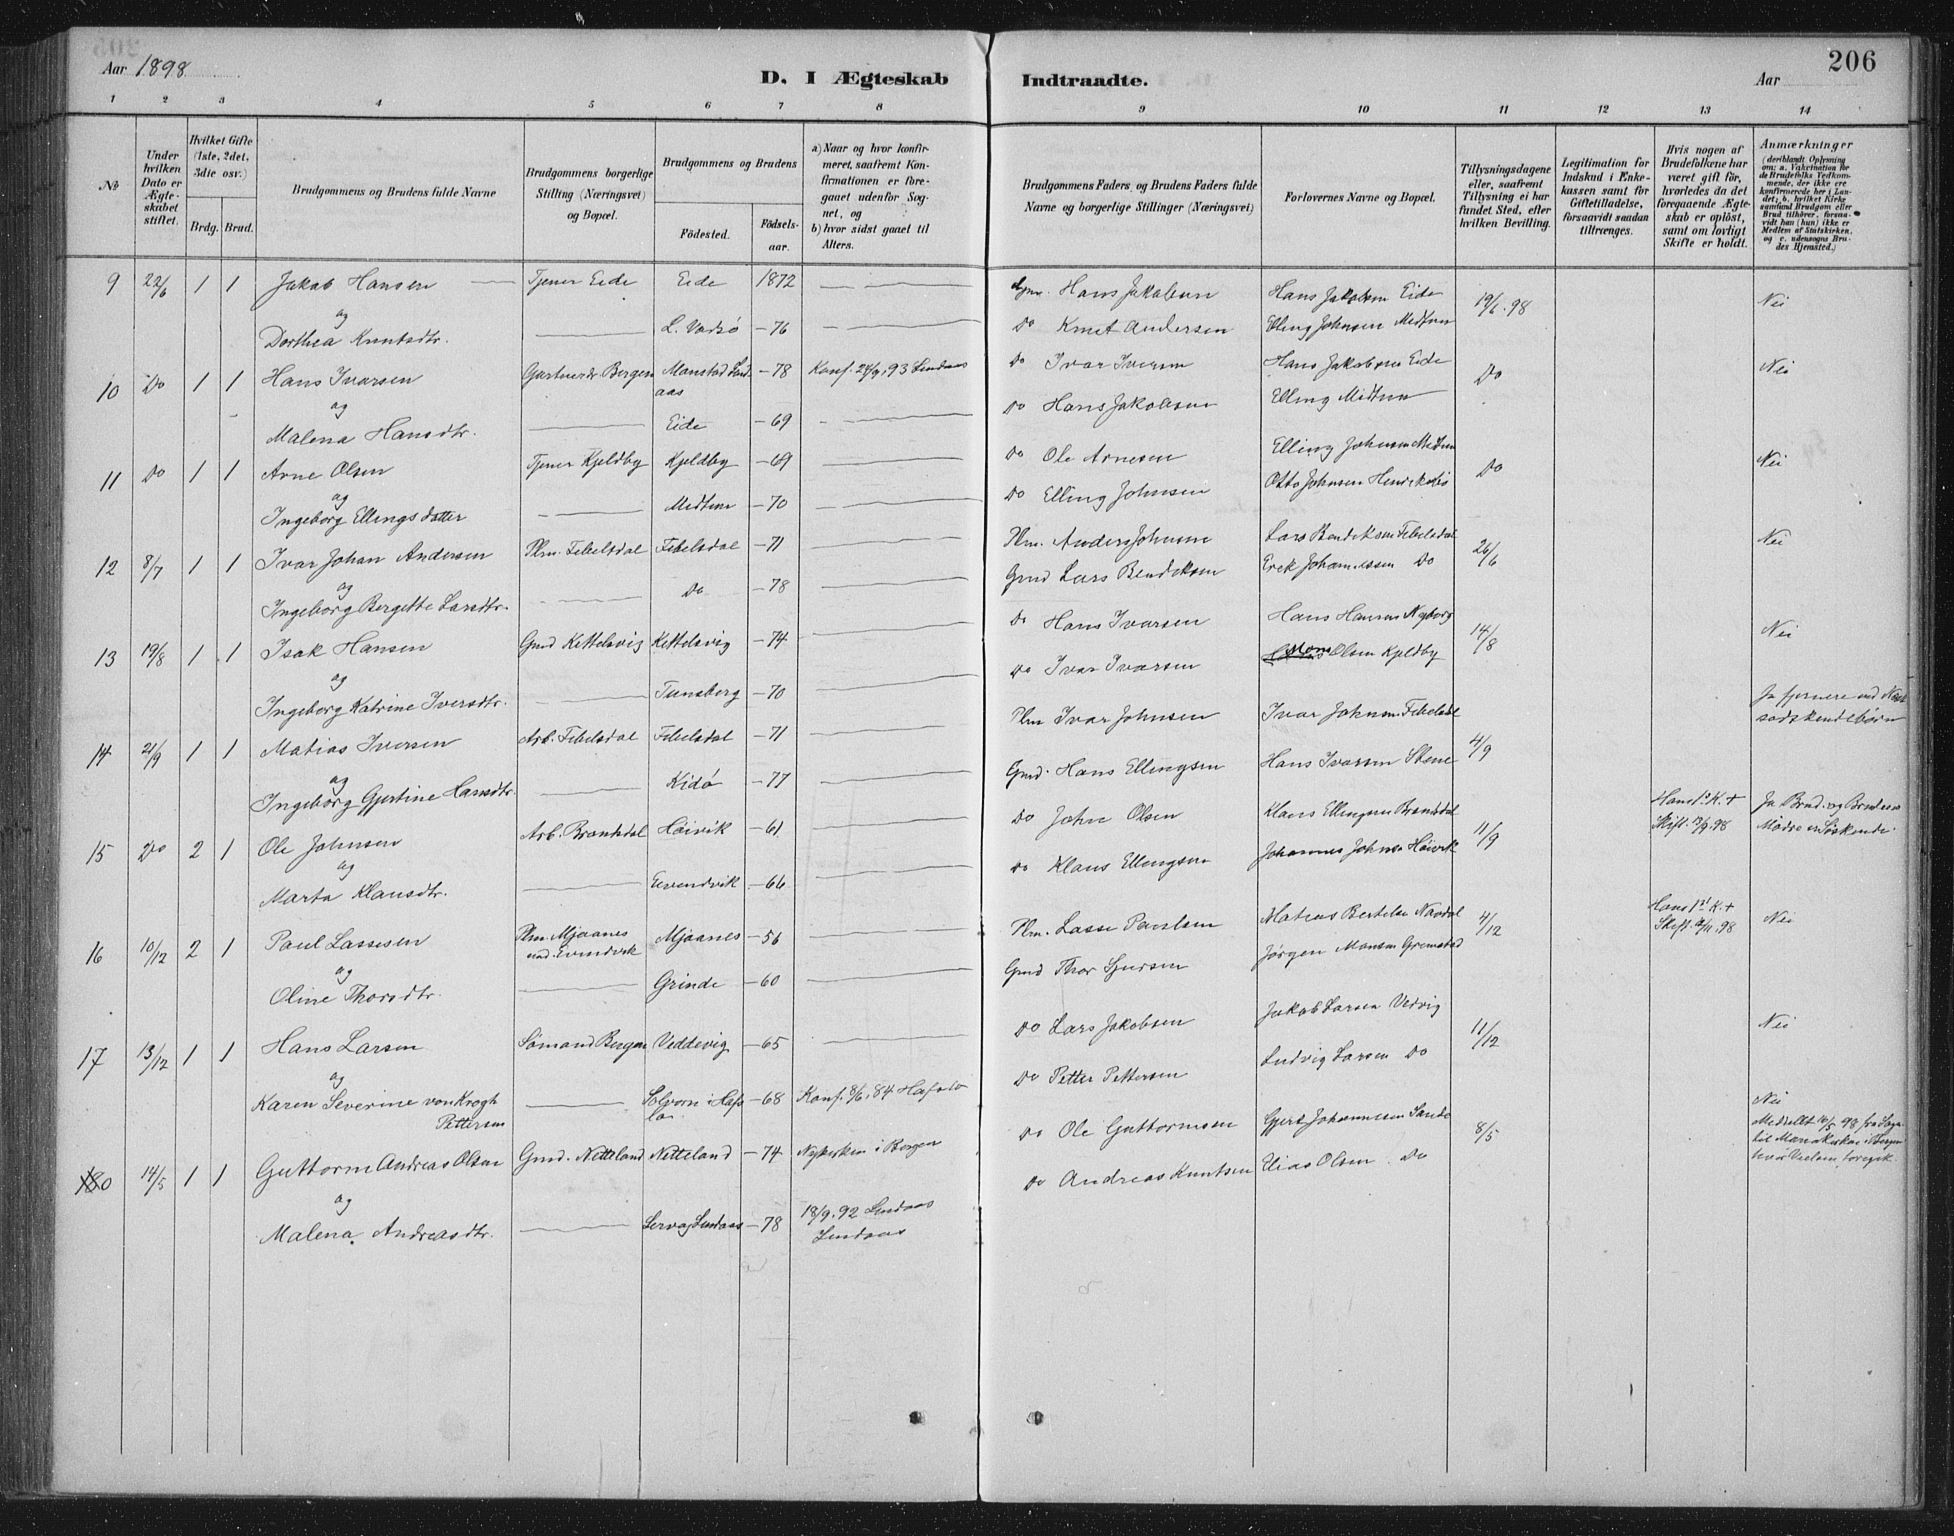 206
Aar 1898
D. I Ægteskab Indtraadte.
Aar
1 2 3 4 5 6 7 8 9 10 11 12 13 14
№
Under hvilken Dato er Ægteskabet stiftet.
Hvilket Gifte (1ste, 2det, 3die osv.)
Brdg. Brud.
Brudgommens og Brudens fulde Navne
Brudgommens borgerlige Stilling (Næringsvei) og Bopæl.
Brudgommens og Brudens
Fødested.
Fødselsaar.
a) Naar og hvor konfirmeret, saafremt Konfirmationen er foregaaet udenfor Sognet, og
b) hvor sidst gaaet til Alters.
Brudgommens Faders og Brudens Faders fulde Navne og borgerlige Stillinger (Næringsvei)
Forlovernes Navne og Bopæl.
Tillysningsdagene eller, saafremt Tillysning ei har fundet Sted, efter hvilken Bevilling.
Legitimation for Indskud i Ænkekassen samt for Giftetilladelse, forsaavidt saadan tiltrænges.
Hvis nogen af Brudefolkene har været gift før, hvorledes da det foregaaende Ægteskab er opløst, samt om lovligt Skifte er holdt.
Anmærkninger
(deriblandt Oplysning om: a. Vakcination for de Brudefolks Vedkommende, der ikke ere konfirmerede her i Landet; b. hvilket Kirkesamfund Brudgom eller Brud tilhører, forsaavidt han (hun) ikke er Medlem af Statskirken, og c. udensogns Brudes Hjemsted.)
9 22/6 1 1 Jakob Hansen Tjener Eide Eide 1872 Gm. Hans Jakobsen Hans Jakobsen Eide 19/6. 98 Nei
og
Dorthea Knutsdtr. L. Vadsø – 76 Do Knut Andersen Elling Johnsen Midtun
10 Do 1 1 Hans Ivarsen Gartnerdr. Bergen Monstad Lindaas – 78 Konf. 24/9, 93 Lindaas Do Ivar Iversen Hans Jakobsen Eide Do Nei
og
Malena Hansdtr. Eide – 69 Do Hans Jakobsen Elling Midtun
11 Do 1 1 Arne Olsen Tjener Kjeldby Kjeldby – 69 Do Ole Arnesen Elling Johnsen Midtun Do Nei
og
Ingeborg Ellingsdatter Midtun – 70 Do Elling Johnsen Otto Johnsen
12 8/7 1 1 Ivar Johan Andersen Plm. Febelsdal Febelsdal – 71 Plm. Anders Johnsen Lars Bendiksen Febelsdal 26/6 Nei
og
Ingeborg Bergette Larsdtr. Do – 78 Gmd Lars Bendiksen Erik Johannessen Do
13 19/8 1 1 Isak Hansen Gmd Kettelsvig Kettelsvig – 74 Do Hans Ivarsen Hans Hansen Nyborg 14/8 Nei
og
Ingeborg Katrine Iversdtr. Tunsberg – 70 Do Ivar Ivarsen Mons Olsen Kjeldby
14 21/9 1 1 Matias Iversen Arb. Febelsdal Febelsdal – 71 Plm Ivar Johnsen Ivar Johnsen Febelsdal 4/9 Ja fjernere end Næstsødskendebørn
og
Ingeborg Gjertine Hansdtr. Kidø – 77 Gmd. Hans Ellingsen Hans Ivarsen Stene
15 Do 2 1 Ole Johnsen Arb. Brandsdal Høivik – 61 Do John Olsen Klaus Ellingsen Brandsdal 11/9 Hans 1ste K. + Skift. 13/9 98 Ja Brud. og Brudens Mødre er Søskende.
og
Marta Klausdtr. Evendvik – 66 Do Klaus Ellingsen Johannes Johnsen Høivik
16 10/12 2 1 Paul Lassesen Plm. Mjaanes Evendvik Mjaanes – 56 Plm. Lasse Paulsen Matias Bertelsen Navdal 4/12 Hans 1st K. + Skift. 98 Nei
og
Oline Thorsdtr. Grinde – 60 Gmd Thor Sjursen Jørgen Monsen Grimstad
17 13/12 1 1 Hans Larsen Sømand Bergen Veddevig – 65 Do Lars Jakobsen Jakob Larsen Vedvig 11/12 Nei
og
Karen Severine von Krogh Pettersen Solvorn i Hafslo – 68 Konf. 8/6, 84 Hafslo Do Petter Pettersen Ludvig Larsen Do
180 14/5 1 1 Guttorm Andreas Olsen Gmd. Netteland Netteland – 74 Nykirken i Bergen Do Ole Guttormsen Gjert Johannessen Sande 8/5 Nei
Meddelt 10/5 98 fra til Mariakirken i Bergen hvor Vielsen foregik.
og
Malena Andreasdtr. Lindaas – 78 18/9. 92 Lindaas Lindaas Do Andreas Knutsen Elias Olsen Do